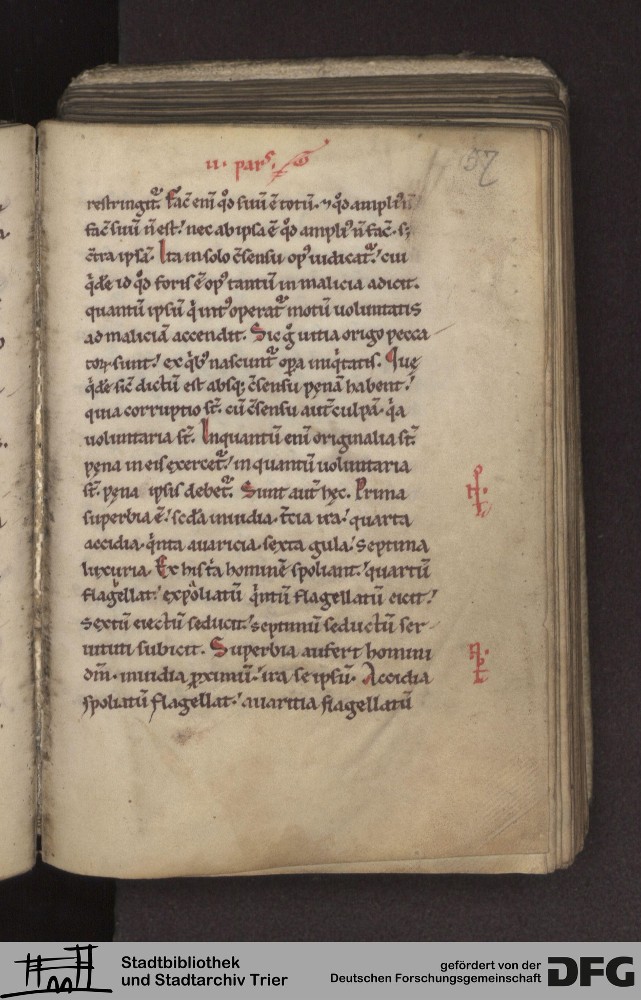 ii. parſ.
57
restringit᷑. Fac̄ eni᷑ qd̄ suū ē totū. ⁊ qd̄ ampliꝰ n̄
fac̄ suū n̄ est. nec ab ipsa ē qd̄ ampliꝰ n̄ fac̄. sꝫ
c̄tra ipsā. Ita in solo c̄sensu opꝰ iudicat᷑. cui
q̇dē id qd̄ foris ē opꝰ tantū in malicia adicit.
quantū ipsū q̇ intꝰ operat᷑ motū uoluntatis
ad maliciā accendit. Sic g̊ uitia origo pecca
toꝝ sunt. ex q̇bꝰ nascunt᷑ oꝑa iniq̇tatis. Quę
q̇dē sic̄ dictū est absqꝫ c̄sensu pęnā habent.
quia corruptio st̄. cū c̄sensu aut̄ culpā. q̇a
uoluntaria st̄. Inquantū eni᷑ originalia st̄
pęna in eis exercet᷑. in quantū uoluntaria
st̄. pęna ipsis debet᷑. Sunt aut̄ hęc. Prima
superbia ē. scd̄a inuidia. t̄cia ira. quarta
accidia. q̇nta auaricia. sexta gula. septima
luxuria. Ex his t̄a hominē spoliant. quartū
flagellat. expoliatū q̇ntū flagellatū eicit.
Sextū eiectū seducit. septimū seductū ser
uituti subicit. Superbia aufert homini
dm̄. inuidia ꝓximū. ira se ipsū. Accidia
spoliatū flagellat. auaritia flagellatū
Stadtbibliothek
und Stadtarchiv Trier
gefördert von der
Deutschen Forschungsgemeinschaft
DFG